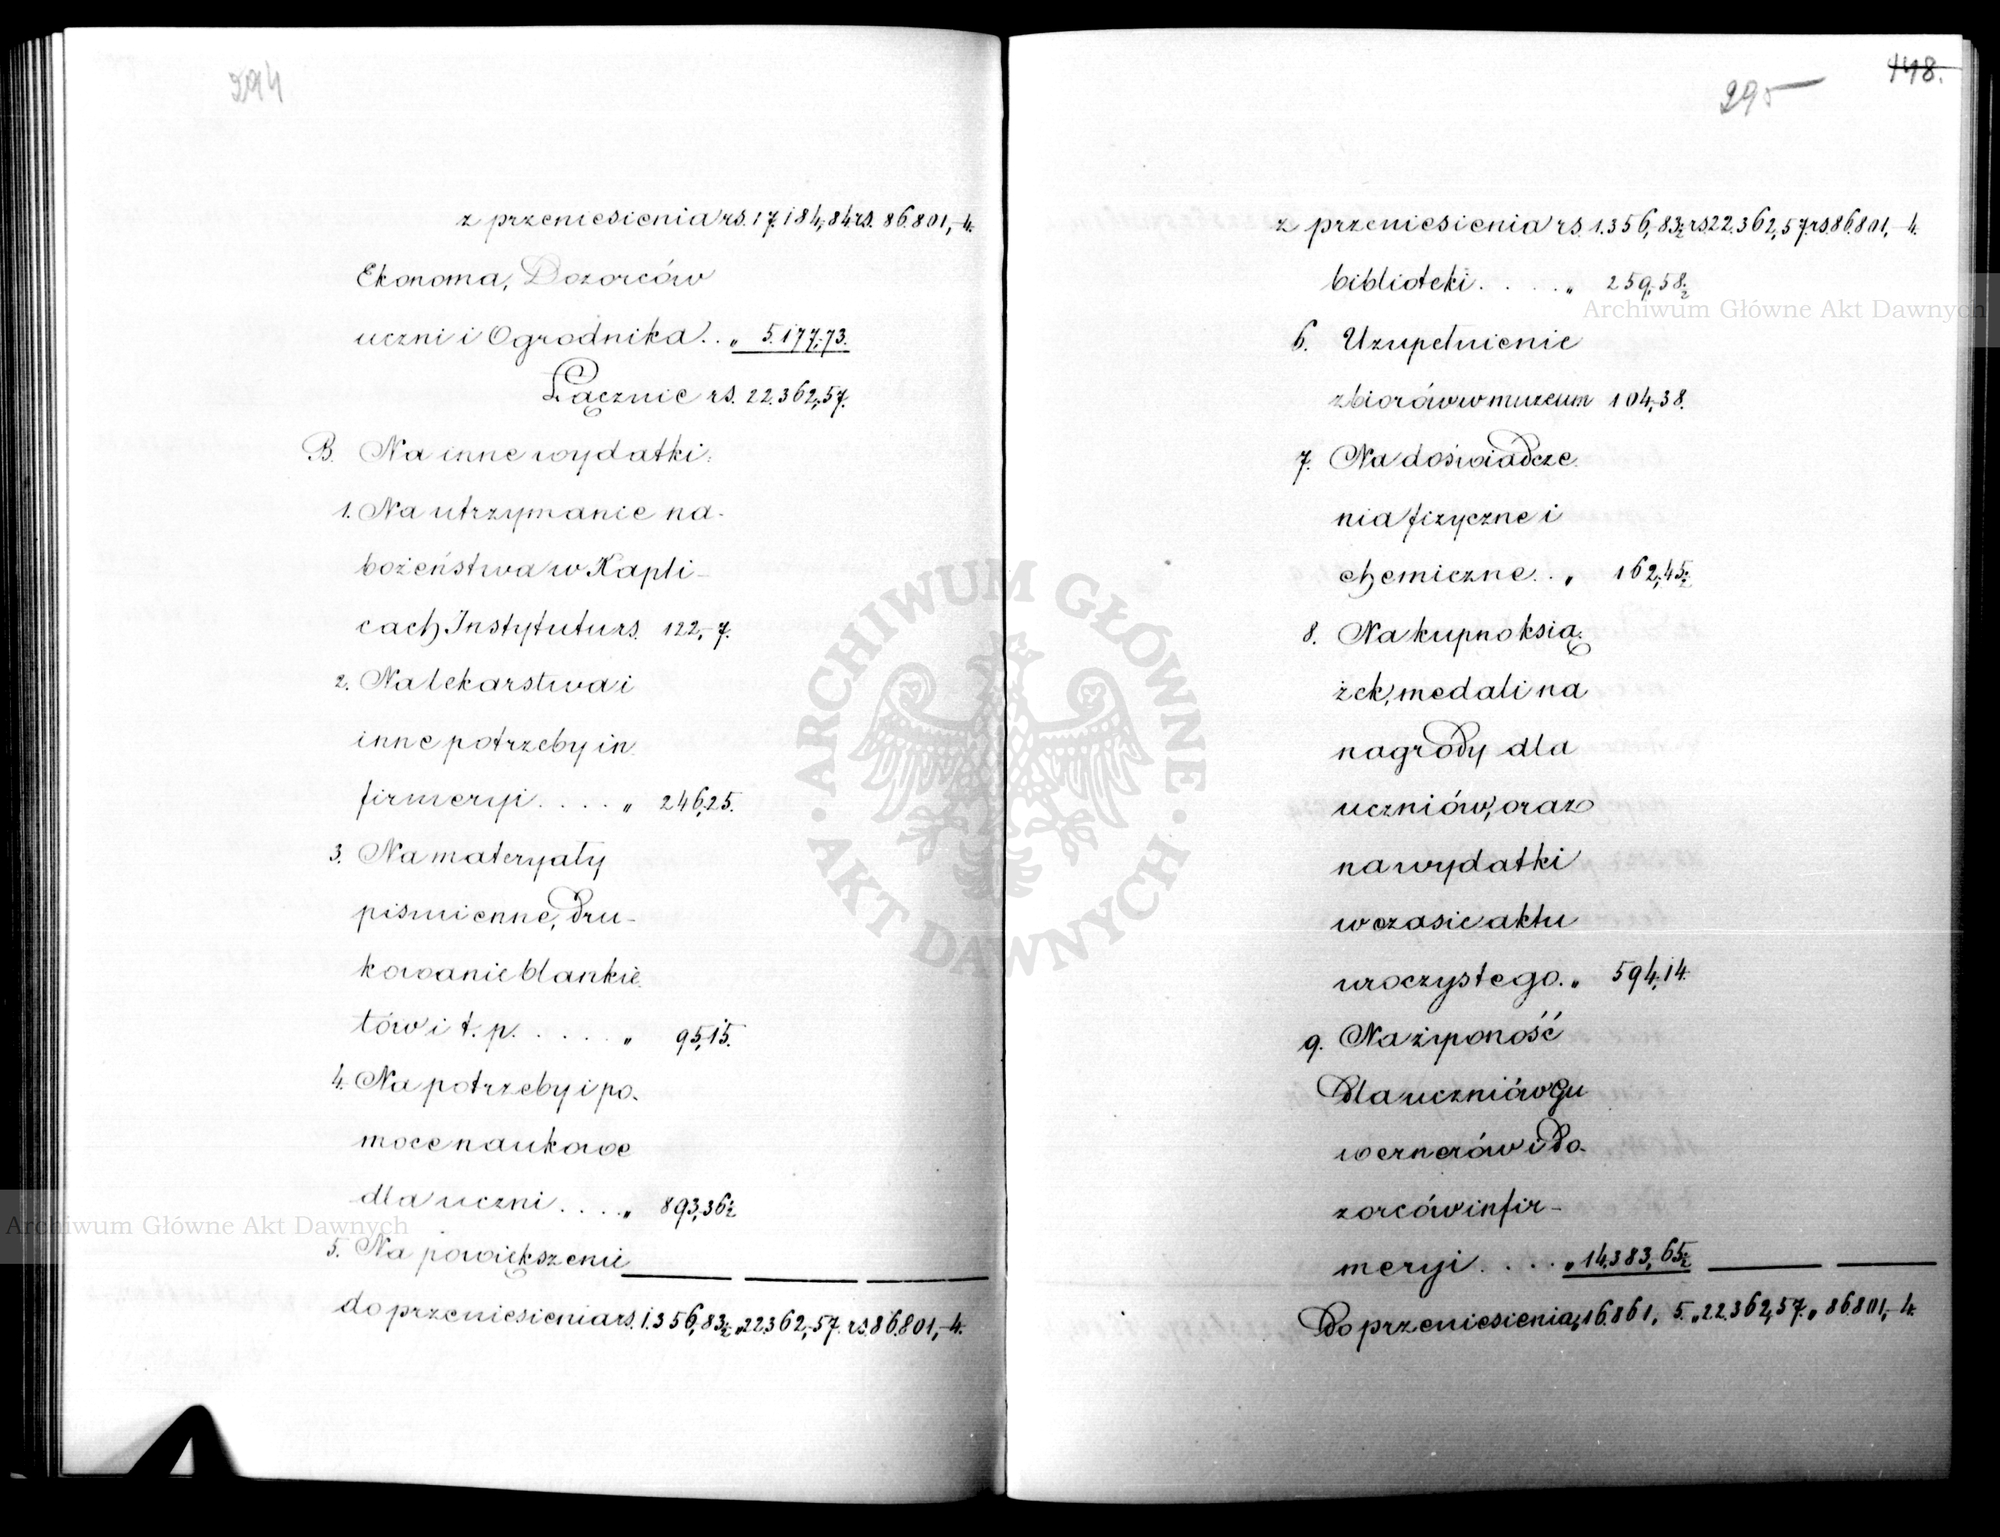 294
z przeniesienia rs. 17.184,84 rs. 86.801,-4.
Ekonoma, Dozorców
uczni i Ogrodnika . . „ 5.177,-73.
Łącznie rs. 22.362,57.
B. Na inne wydatki:
1. Na utrzymanie na-
bożeństwa w Kapli-
cach Instytutu rs. 122,-7.
2. Na lekarstwa i
inne potrzeby in
firmeryi . . . . „ 246,25.
3. Na materyały
piśmienne, dru-
kowanie blankie-
tów i t. p. . . . . . „ 95,15.
4. Na potrzeby i po-
moce naukowe
dla uczni . . . . „ 893,36½
5. Na powiększenie
do przeniesienia rs. 1.356,83½ „ 22362,-57. rs. 86.801,-4.
148.
295
z przeniesienia rs. 1.356,-83½ rs. 22.362,57. rs. 86.801,-4.
biblioteki . . . . . „ 259,58½
6. Uzupełnienie
zbiorów w muzeum 104,-38.
7. Na doświadcze-
nia fizyczne i
chemiczne . . „ 162,-45½
8. Na kupno ksią-
żek, medali na
nagrody dla
uczniów, oraz
na wydatki
w czasie aktu
uroczystego. „ 594,14.
9. Na żywność
dla uczniów gu
wernerów i do-
zorców infir-
meryi . . . . „ 14.383,65½
Do przeniesienia „ 16.861, 5. „ 22.362,57. „ 86801,-4.
Archiwum Główne Akt Dawnych
Archiwum Główne Akt Dawnych
ARCHIWUM GŁÓWNE
AKT DAWNYCH